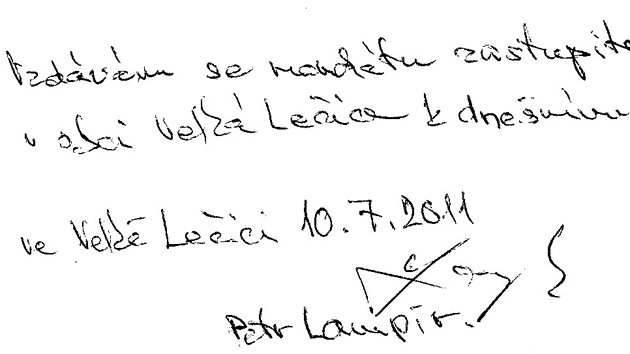 Vzdávám se mandátu zastupite
v obci Velká Lečice k dnešnímu
ve Velké Lečici 10.7.2011
Petr Lampír.